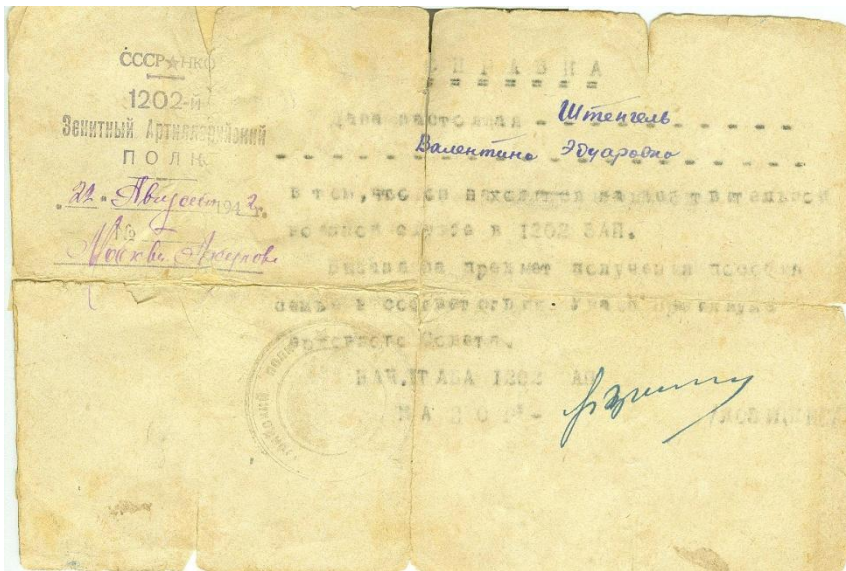 СССР☆НКО
1202-й
Зенитный Артиллерийский
ПОЛК
"22" Август 1942г.
№
Москва
СПРАВКА
Дана настоящая - Штенгель
Валентине Эдуаровна
в том, что он находится на действительной
военной службе в 1202 ЗАП.
Выдана на предмет получения пособия
семье в соответствии Указа Президиума
Верховного Совета.
НАЧ.ШТАБА 1202 ЗАП
МАЙОР -